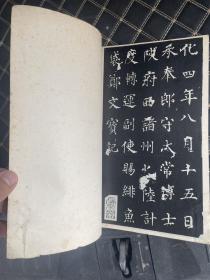 化四年八月十五日
承奉郎守太常博士
陕府西諸州水陸計
度轉運副使賜緋魚
袋鄭文寶記